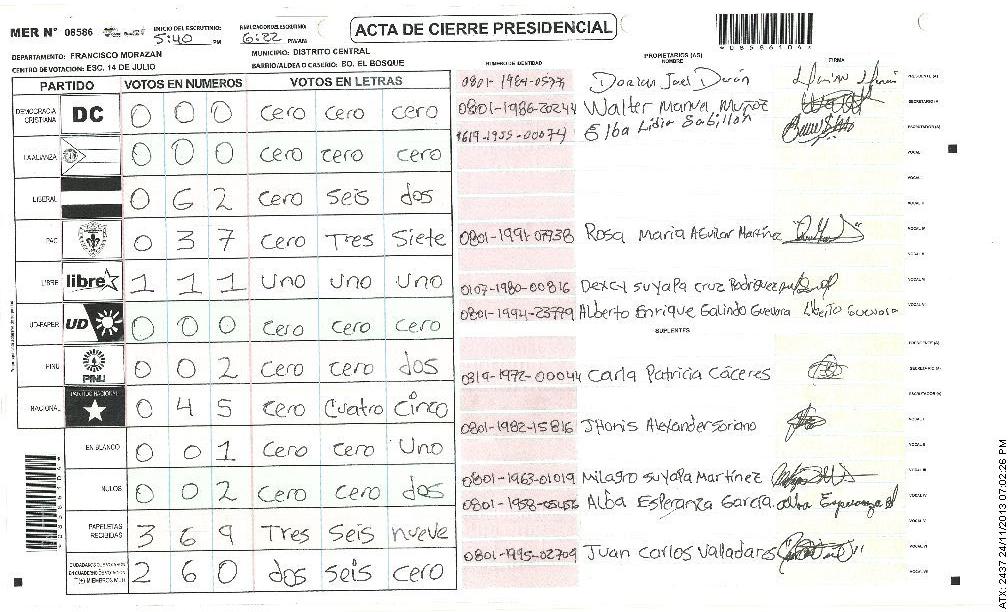 MER Nº 08586
INICIO DEL ESCRUTINIO:
5:40 PM
FINALIZACION DEL ESCRUTINIO:
6:22 PM/AM
ACTA DE CIERRE PRESIDENCIAL
DEPARTAMENTO: FRANCISCO MORAZAN
MUNICIPIO: DISTRITO CENTRAL
CENTRO DE VOTACION: ESC. 14 DE JULIO
BARRIO/ALDEA O CASERIO: BO. EL BOSQUE
PARTIDO VOTOS EN NUMEROS VOTOS EN LETRAS
DEMOCRACIA CRISTIANA DC 0 0 0 cero cero cero
LA ALIANZA 0 0 0 cero cero cero
LIBERAL 0 6 2 cero seis dos
PAC 0 3 7 cero Tres Siete
LIBRE libre 1 1 1 uno uno uno
UD-FAPER UD 0 0 0 cero cero cero
PINU PINU 0 0 2 cero cero dos
NACIONAL PARTIDO NACIONAL 0 4 5 cero cuatro cinco
EN BLANCO 0 0 1 cero cero Uno
NULOS 0 0 2 cero cero dos
PAPELETAS RECIBIDAS 3 6 9 Tres Seis nueve
2 6 0 dos seis cero
NUMERO DE IDENTIDAD
PROPIETARIOS (AS)
NOMBRE
FIRMA
PRESIDENTE (A)
0801-1986-20244 Walter
SECRETARIO/A
Elba Lidia Sabillón
ESCRUTADOR(A)
VOCAL I
VOCAL II
0801-1991-07938 Rosa Maria Aguilar Martinez
0107-1980-00816 Dexcy suyapa cruz Rodriguez
0801-1994-23779 Alberto Enrique Galindo Guevara
SUPLENTES
PRESIDENTE (A)
0319-1972-00044 Carla Patricia Cáceres
SECRETARIO (A)
ESCRUTADOR (A)
0801-1982-15816 Jhonis Alexander soriano
VOCAL I
VOCAL II
0801-1963-01019 Milagro suyapa Martinez
VOCAL III
Alba Esperanza García
VOCAL IV
VOCAL V
0801-1995-02709 Juan Carlos Valadares
VOCAL VI
VOCAL VII
ATX: 2437 24/11/2013 07:02:26 PM